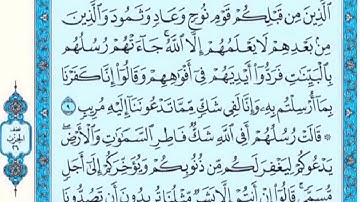 ٱلَّذِينَ مِن قَبۡلِكُمۡ قَوۡمِ نُوحٖ وَعَادٖ وَثَمُودَ وَٱلَّذِينَ
مِنۢ بَعۡدِهِمۡ لَا يَعۡلَمُهُمۡ إِلَّا ٱللَّهُۚ جَآءَتۡهُمۡ رُسُلُهُم
بِٱلۡبَيِّنَٰتِ فَرَدُّوٓاْ أَيۡدِيَهُمۡ فِيٓ أَفۡوَٰهِهِمۡ وَقَالُوٓاْ إِنَّا كَفَرۡنَا
بِمَآ أُرۡسِلۡتُم بِهِۦ وَإِنَّا لَفِي شَكّٖ مِّمَّا تَدۡعُونَنَآ إِلَيۡهِ مُرِيبٖ ٩
۞ قَالَتۡ رُسُلُهُمۡ أَفِي ٱللَّهِ شَكّٞ فَاطِرِ ٱلسَّمَٰوَٰتِ وَٱلۡأَرۡضِۖ
يَدۡعُوكُمۡ لِيَغۡفِرَ لَكُم مِّن ذُنُوبِكُمۡ وَيُؤَخِّرَكُمۡ إِلَىٰٓ أَجَلٖ
مُّسَمّٗىۚ قَالُوٓاْ إِنۡ أَنتُمۡ إِلَّا بَشَرٞ مِّثۡلُنَا تُرِيدُونَ أَن تَصُدُّونَا
نصف
الحزب
٢٦